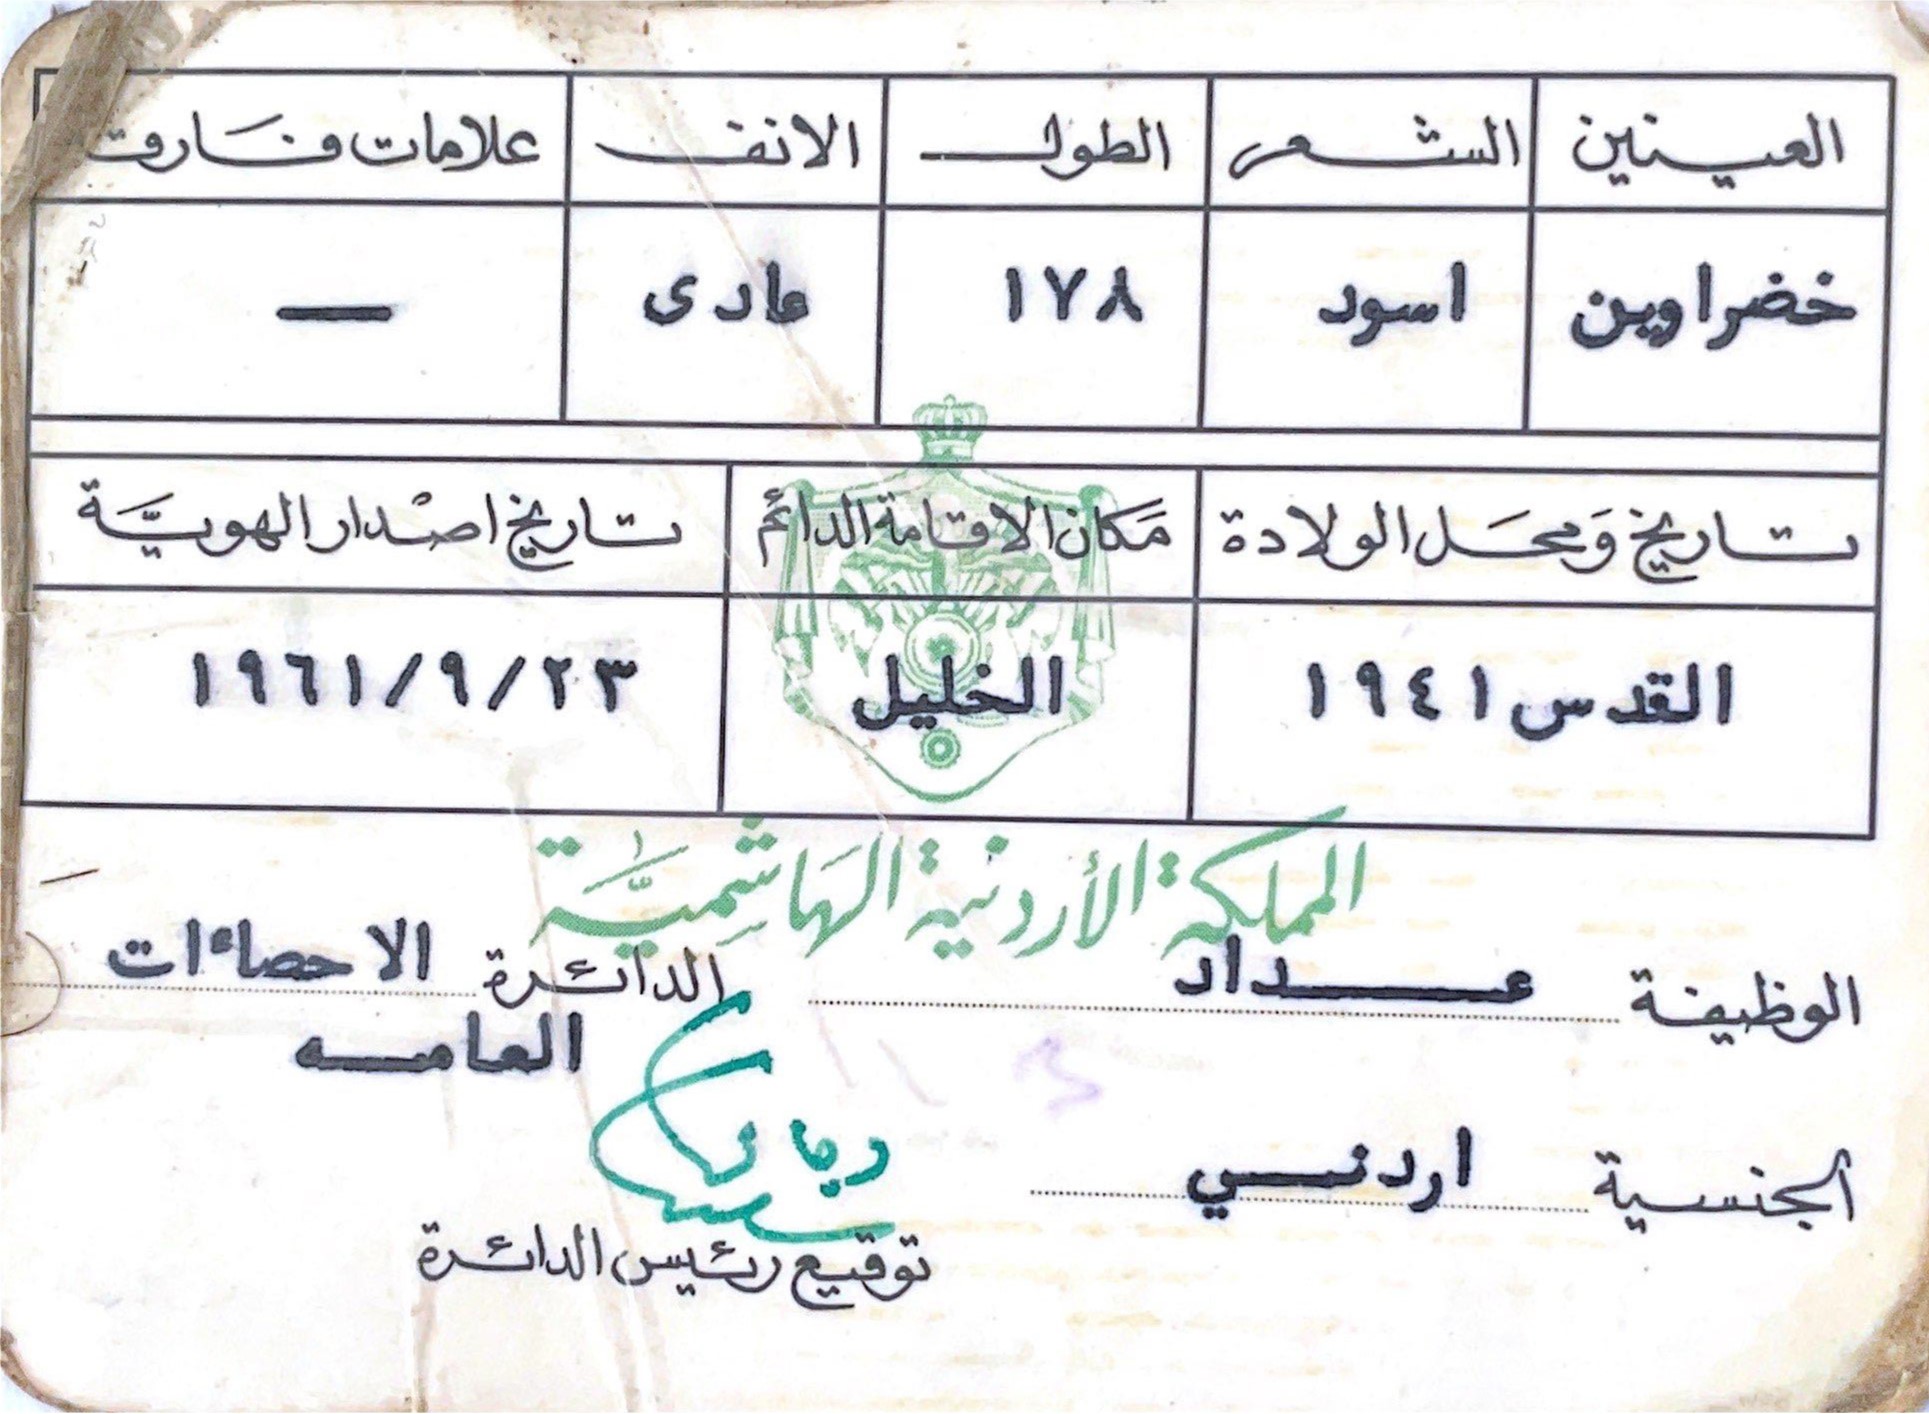 العينين الشعر الطول الانف علامات فارقة
خضراوين اسود ١٧٨ عادى —
تاريخ ومحل الولادة مكان الاقامة الدائم تاريخ اصدار الهوية
القدس ١٩٤١ الخليل ٢٣/٩/١٩٦١
المملكة الأردنية الهاشمية
الوظيفة عداد الدائرة الاحصاءات
العامه
الجنسية اردني
توقيع رئيس الدائرة